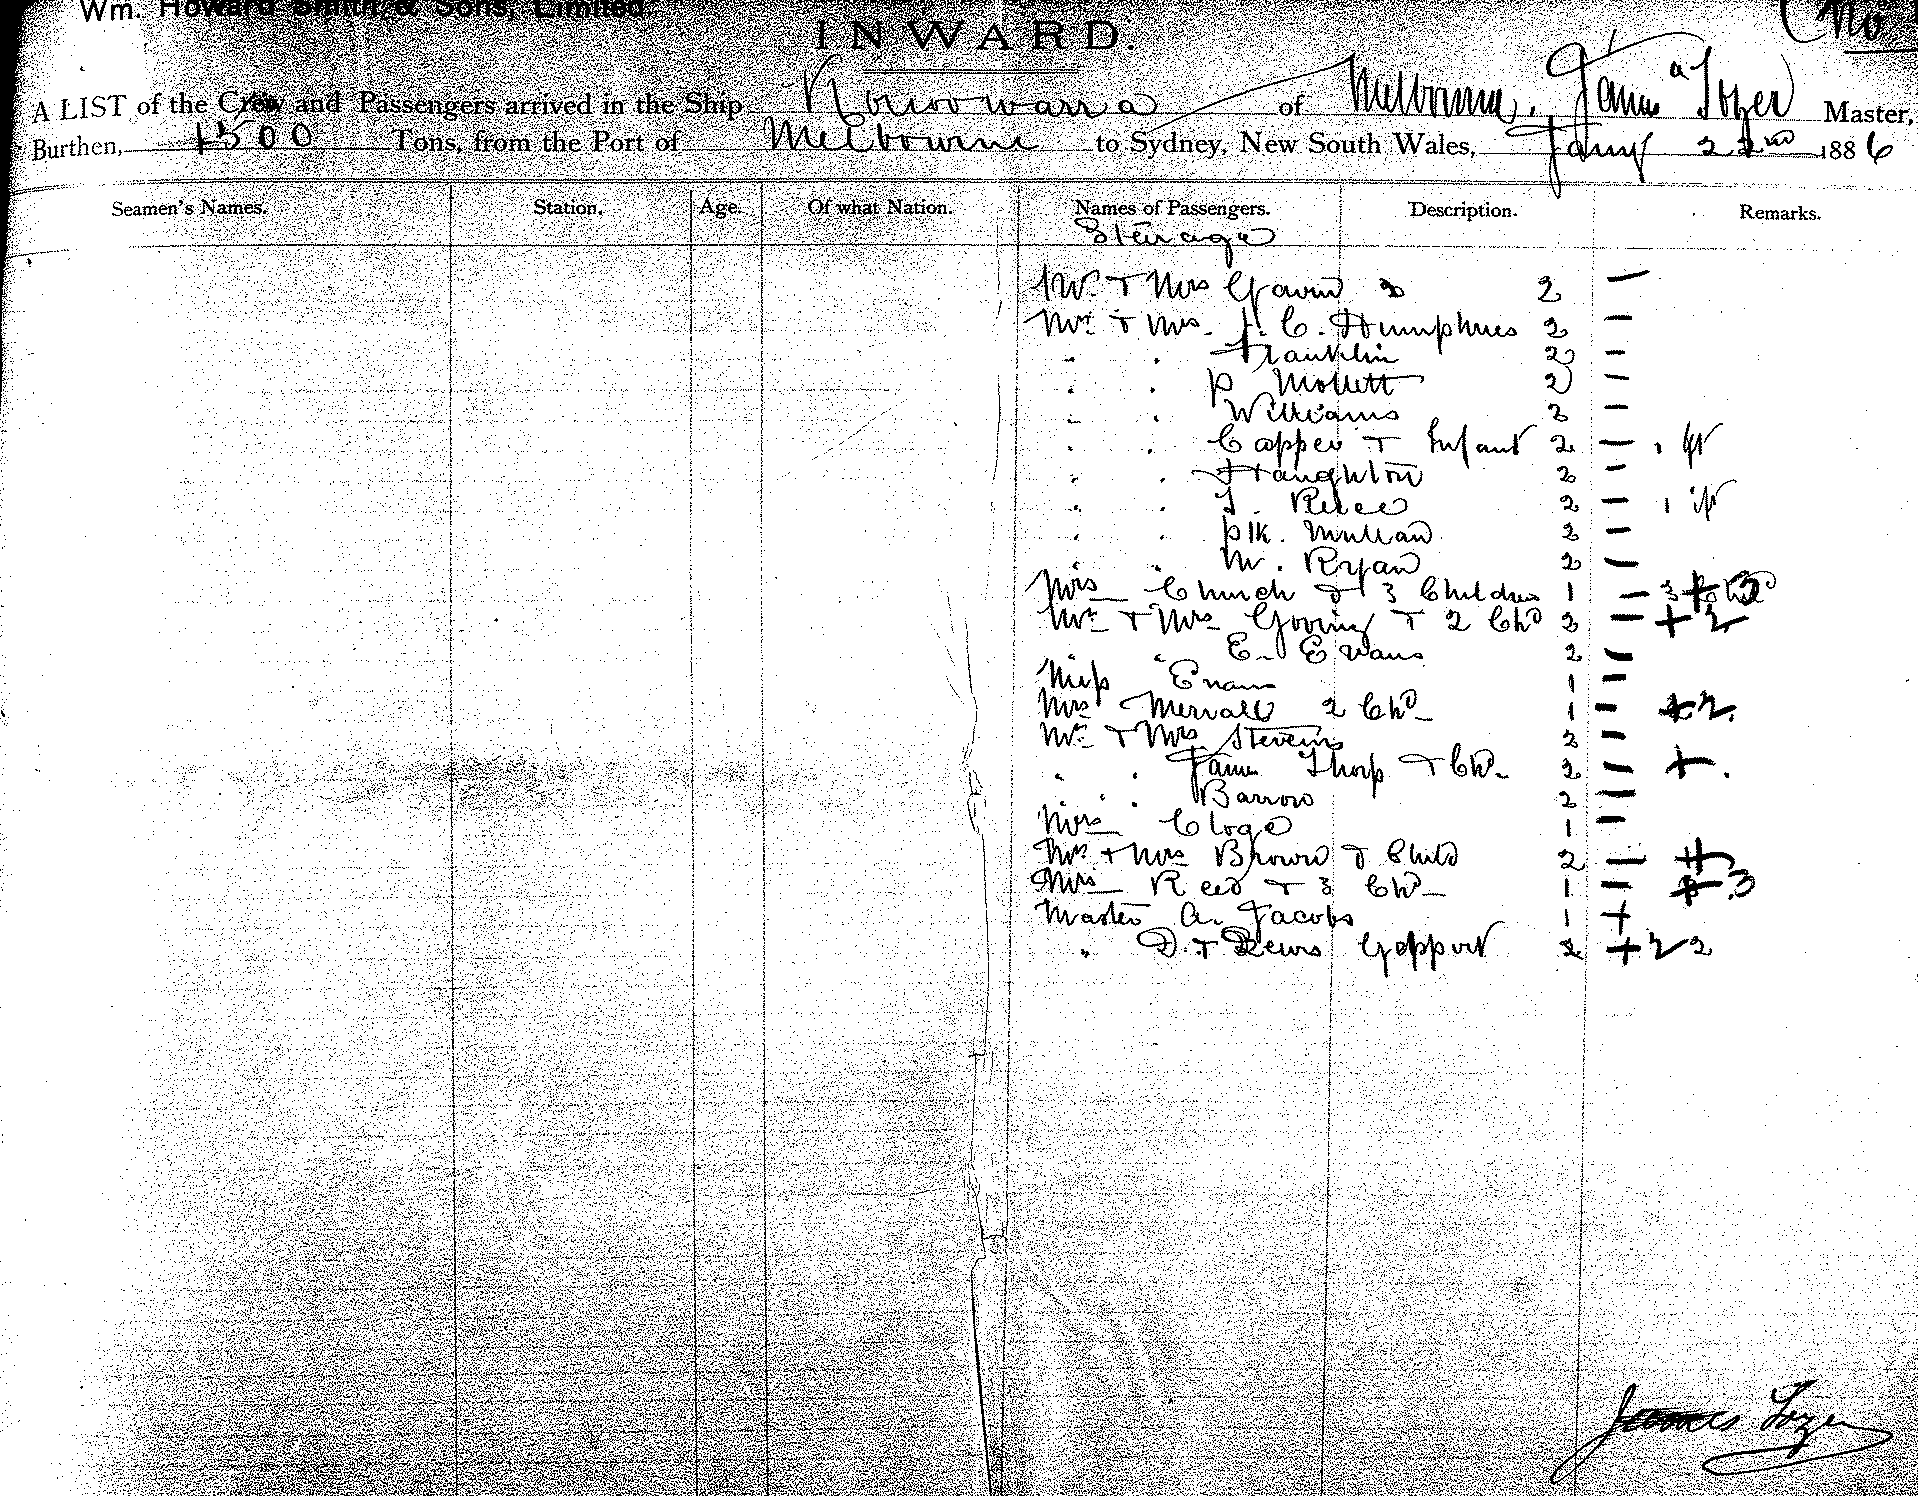 Wm. Howard Smith & Sons, Limited
(No
INWARD.
A LIST of the Crew and Passengers arrived in the Ship Konoowarra of Melbourne, James a Tozer Master,
Burthen, 1500 Tons, from the Port of Melbourne to Sydney, New South Wales, Jany 22nd 1886
Seamen's Names. Station. Age. Of what Nation. Names of Passengers. Description. Remarks.
Steerage
Mr & Mrs Gavin 2 2 —
Mr & Mrs J. C. Humphries 2 —
" " Franklin 2 —
" " P Mollett 2 —
" " Williams 2 —
" " Capper & Infant 2 — 1
" " Haughton 2 —
" " T. Reice 2 — 1
" " Plk. Mullan 2 —
" " M. Ryan 2 —
Mrs Church & 3 Children 1 — 3 + 3
Mr & Mrs Gooring & 2 Chd 2 — + 2
" " E. Evans 2 —
Miss Evans 1 —
Mrs Merrall 2 Chd 1 — + 2
Mr & Mrs Stevens 2 —
" " James Thorp & Chd 2 — +
" " Barrow 2 —
Mrs Cloge 1 —
Mr & Mrs Brown & Child 2 — +
Mrs Reed & 3 Chd 1 — + 3
Master A. Jacobs 1 +
" D. & Geppert 2 + 2 2
James Tozer